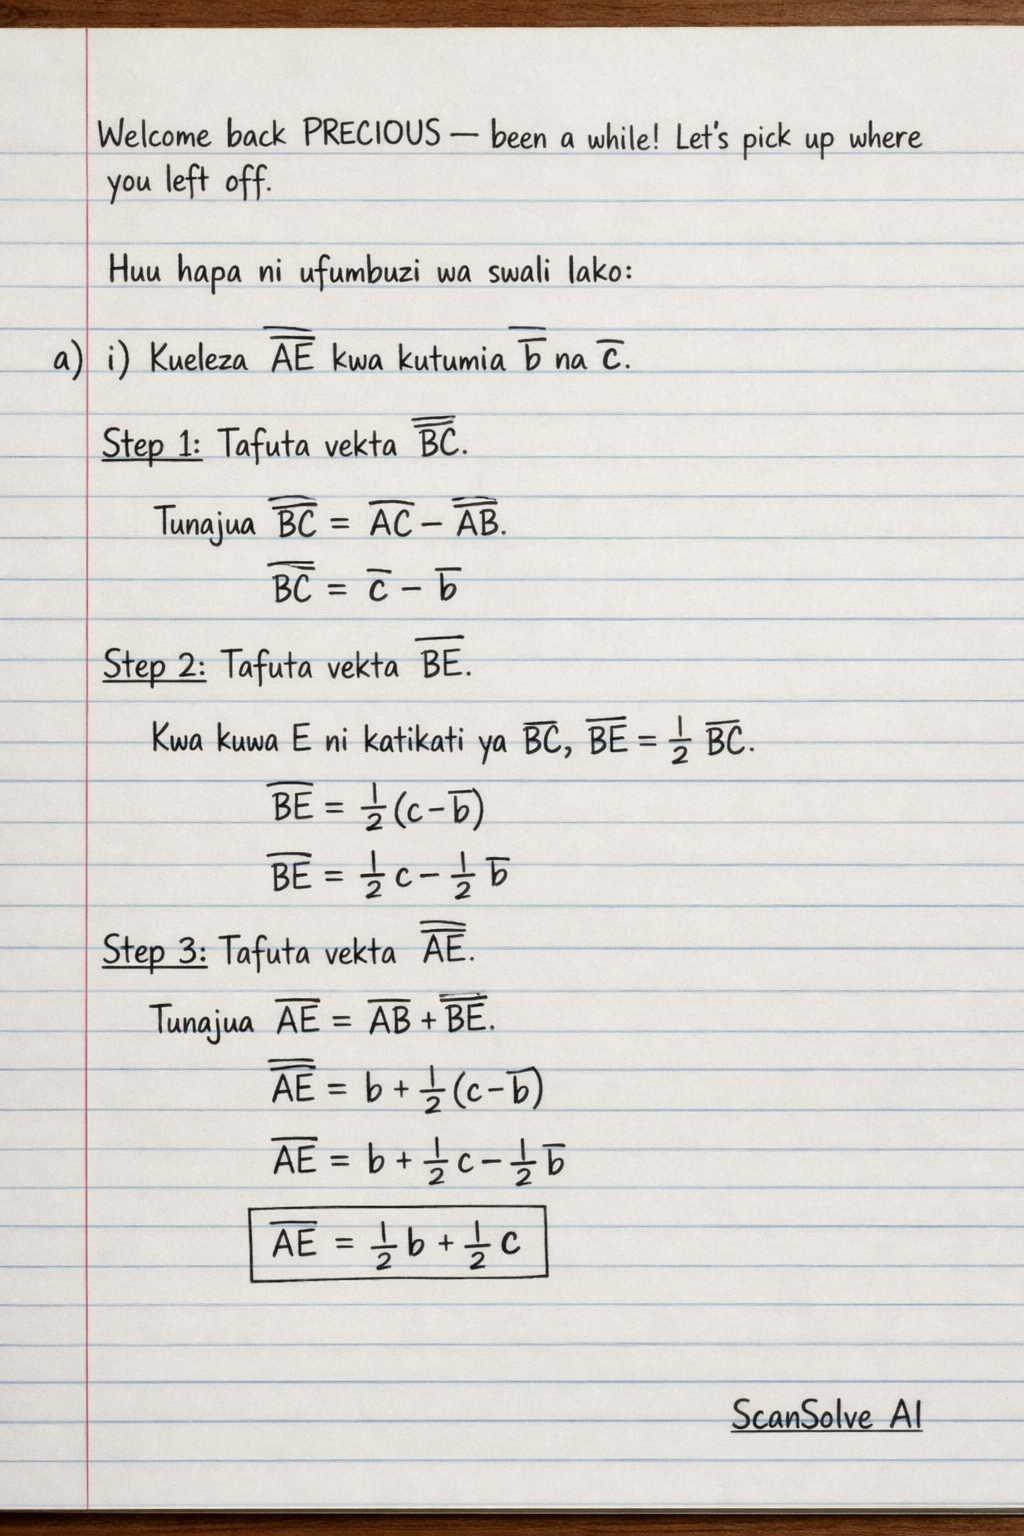 Welcome back PRECIOUS — been a while! Let's pick up where
you left off.
Huu hapa ni ufumbuzi wa swali lako:
a) i) Kueleza A̅E̅ kwa kutumia b̅ na c̅.
Step 1: Tafuta vekta B̅C̅.
Tunajua B̅C̅ = A̅C̅ − A̅B̅.
B̅C̅ = c̅ − b̅
Step 2: Tafuta vekta B̅E̅.
Kwa kuwa E ni katikati ya B̅C̅, B̅E̅ = 1/2 B̅C̅.
B̅E̅ = 1/2 (c − b̅)
B̅E̅ = 1/2 c − 1/2 b̅
Step 3: Tafuta vekta A̅E̅.
Tunajua A̅E̅ = A̅B̅ + B̅E̅.
A̅E̅ = b + 1/2 (c − b̅)
A̅E̅ = b + 1/2 c − 1/2 b̅
A̅E̅ = 1/2 b + 1/2 c
ScanSolve AI